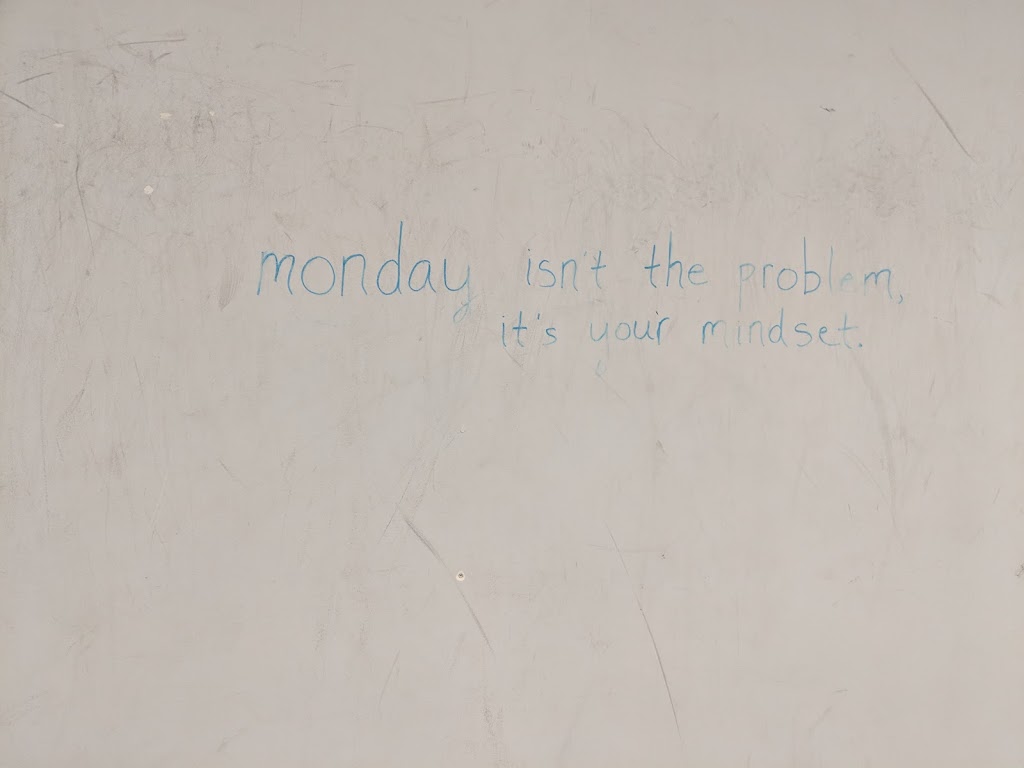 monday isn't the problem,
it's your mindset.